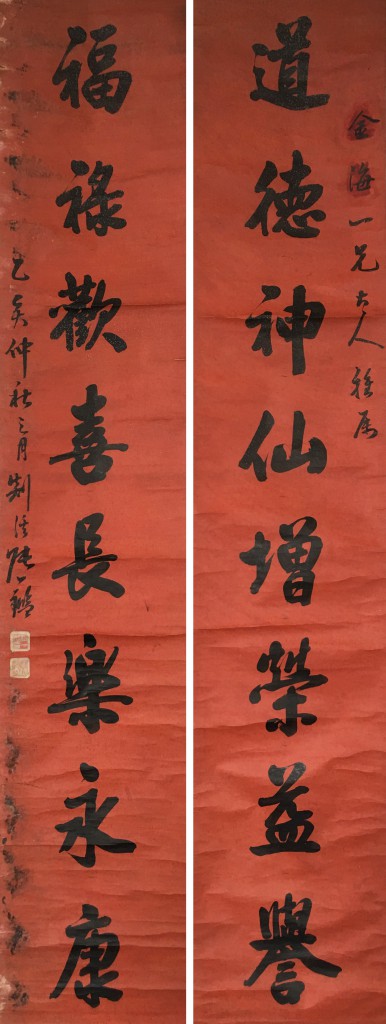 金海一兄大人雅屬
道德神仙增榮益譽
福祿歡喜長樂永康
乙亥仲秋之月